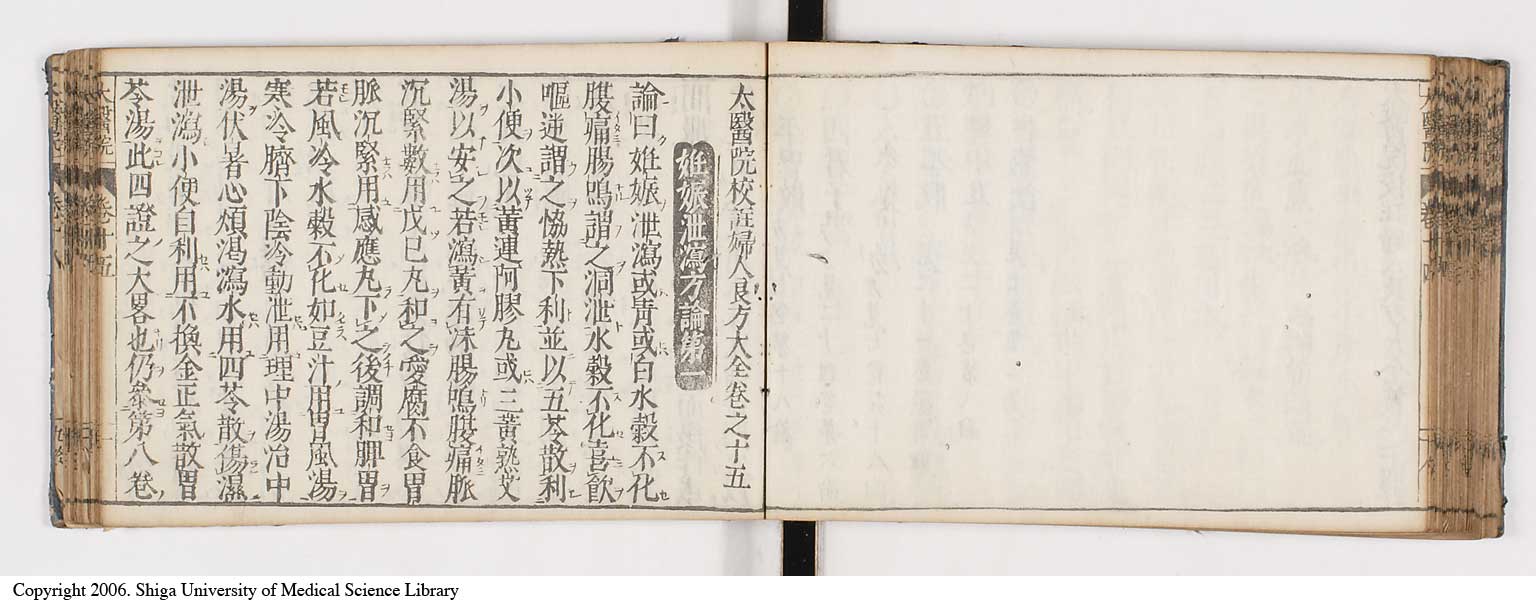 太醫院校註婦人良方大全卷之十五
妊娠泄瀉方論第一
論曰妊娠泄瀉或靑或白水穀不化
腹痛腸鳴謂之洞泄水穀不化喜飮
嘔逆謂之恊熱下利並以五苓散利
小便次以黃連阿膠丸或三黃熟艾
湯以安之若瀉黃有沫腸鳴腹痛脈
沉緊數用戊己丸和之愛腐不食胃
脈沉緊用感應丸下之後調和脾胃
若風冷水穀不化如豆汁用胃風湯
寒冷臍下陰冷動泄用理中湯治中
湯伏暑心煩渴瀉水用四苓散傷濕
泄瀉小便自利用不換金正氣散胃
苓湯此四證之大畧也仍參第八卷
Copyright 2006. Shiga University of Medical Science Library